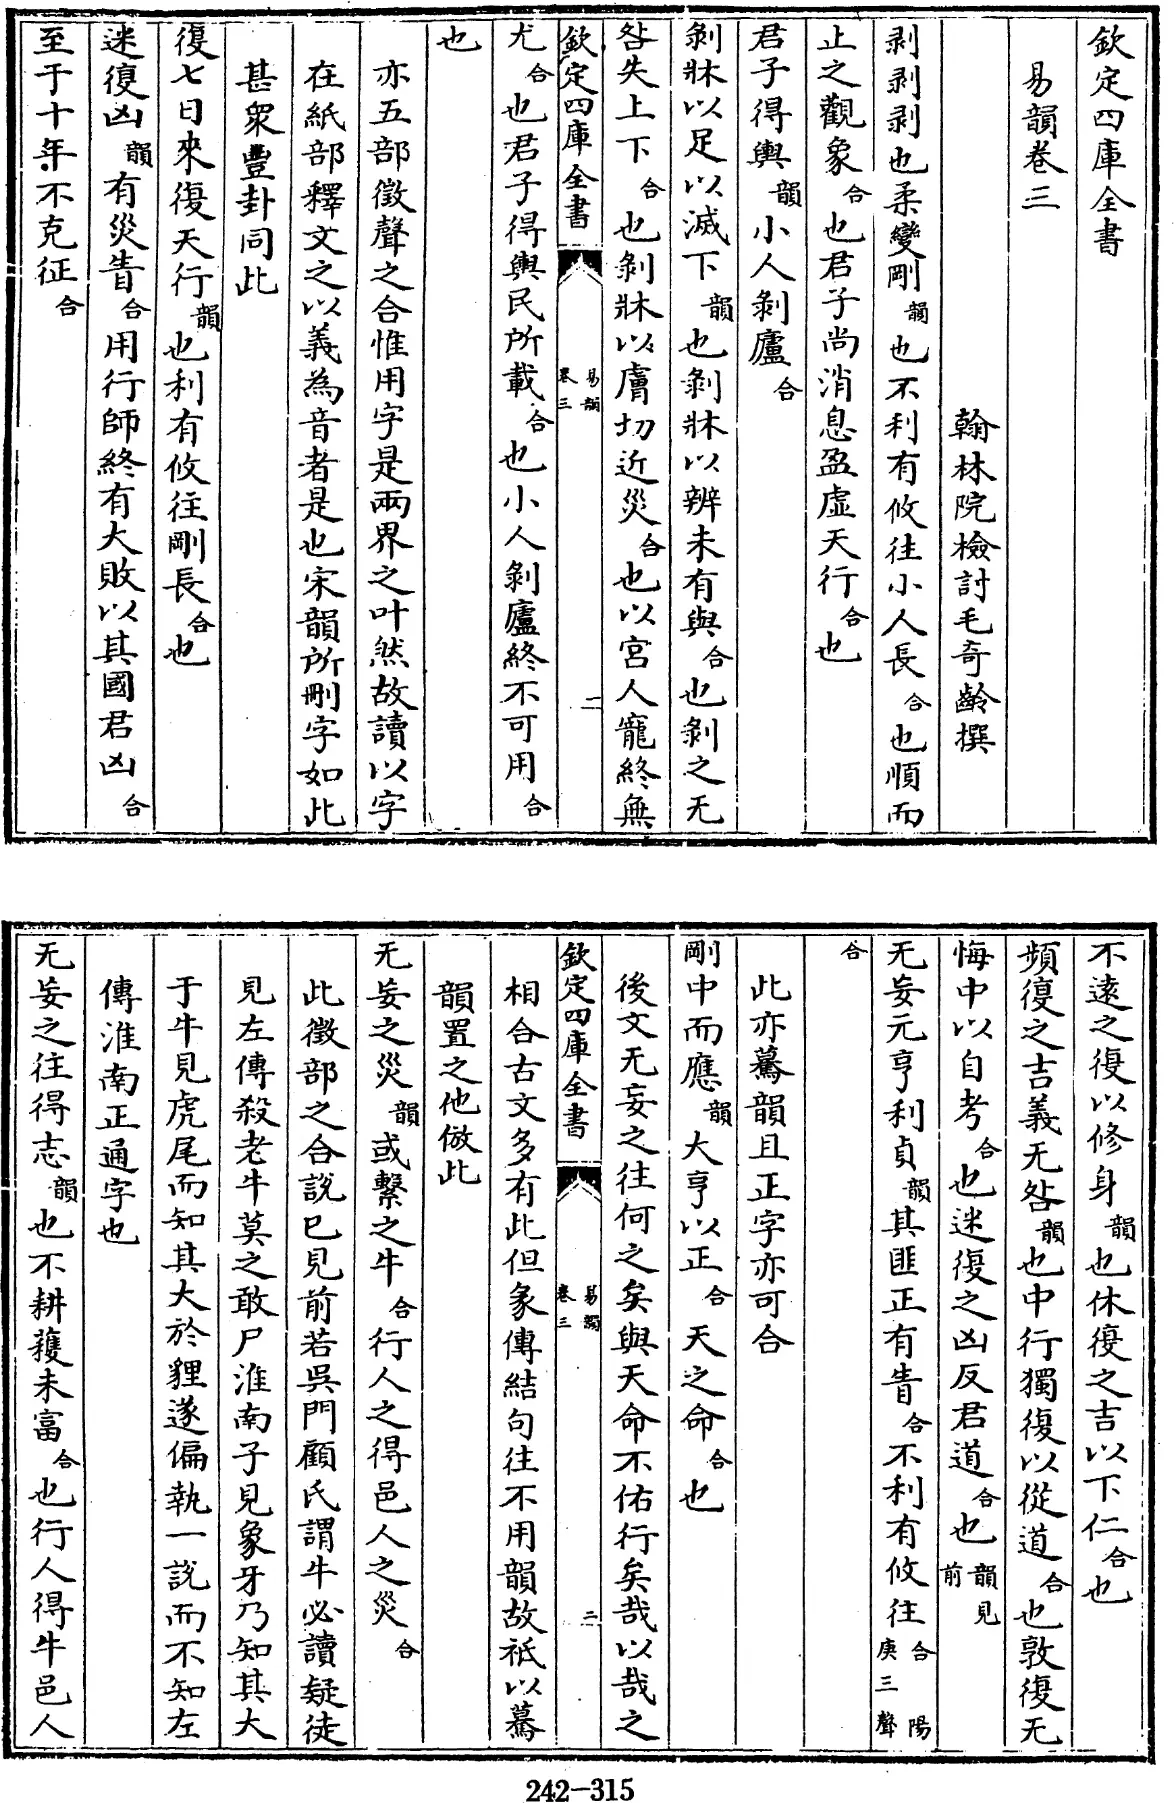 欽定四庫全書
易韻卷三
翰林院檢討毛奇齡撰
剥剥剥也柔變剛韻也不利有攸往小人長合也順而
止之觀象合也君子尚消息盈虛天行合也
君子得輿韻小人剥廬合
剥牀以足以滅下韻也剥牀以辨未有與合也剥之无
咎失上下合也剥牀以膚切近災合也以宮人寵終無
欽定四庫全書
易韻
卷三
一
尤合也君子得輿民所載合也小人剥廬終不可用合
也
亦五部徵聲之合惟用字是兩界之叶然故讀以字
在紙部釋文之以義為音者是也宋韻所刪字如此
甚衆豐卦同此
復七日來復天行韻也利有攸往剛長合也
迷復凶韻有災眚合用行師終有大敗以其國君凶合
至于十年不克征合
不遠之復以修身韻也休復之吉以下仁合也
頻復之吉義无咎韻也中行獨復以從道合也敦復无
悔中以自考合也迷復之凶反君道合也韻見前
无妄元亨利貞韻其匪正有眚合不利有攸往合陽庚三聲
合
此亦驀韻且正字亦可合
剛中而應韻大亨以正合天之命合也
後文无妄之往何之矣與天命不佑行矣哉以哉之
欽定四庫全書
易韻
卷三
二
相合古文多有此但彖傳結句往不用韻故祇以驀
韻置之他倣此
无妄之災韻或繫之牛合行人之得邑人之災合
此徵部之合說已見前若吳門顧氏謂牛必讀疑徒
見左傳殺老牛莫之敢尸淮南子見象牙乃知其大
于牛見虎尾而知其大於貍遂偏執一說而不知左
傳淮南正通字也
无妄之往得志韻也不耕穫未富合也行人得牛邑人
242-315